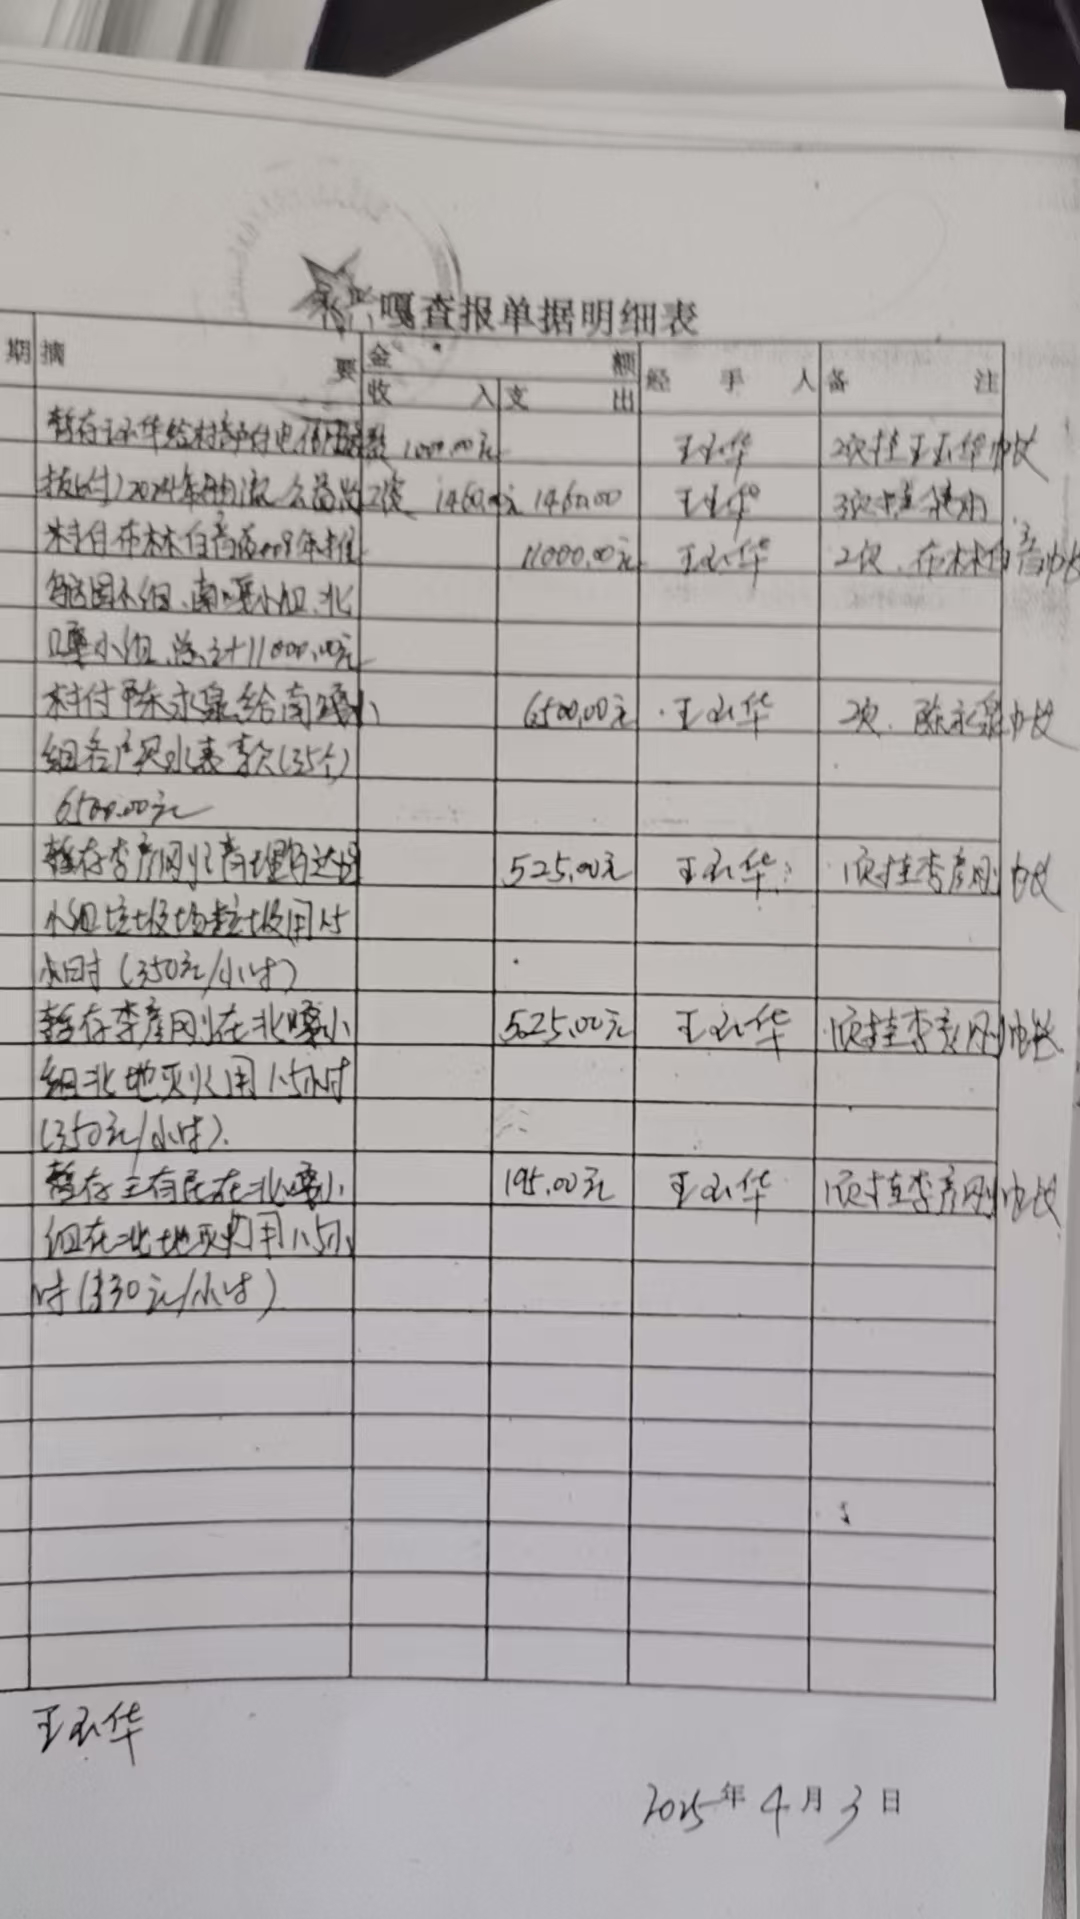 嘎查报单据明细表
期 摘 要 金 额 经 手 人 备 注
收 入 支 出
暂存王玉华给村部 电 款 1000.00元 王玉华 2次挂王玉华帐
拨付2024年 公益 1460.00元 1460.00 王玉华 3次
村付布林白音 11000.00元 王玉华 2次.布林白音帐
小组、南嘎小组、北
嘎小组.总计11000.00元
村付陈永泉给南嘎小 6500.00元 王玉华 2次.陈永泉帐
组各户买水表款(35个)
6500.00元
暂存李彦刚 525.00元 王玉华 1次挂李彦刚帐
小组垃圾场 垃圾用1.5
小时(350元/小时)
暂存李彦刚在北嘎小 525.00元 王玉华 1次挂李彦刚帐
组北地灭火用1.5小时
(350元/小时).
暂存王 民在北嘎小 195.00元 王玉华 1次挂李彦刚帐
组在北地灭火用1.5小
时(130元/小时)
王玉华
2025年4月3日